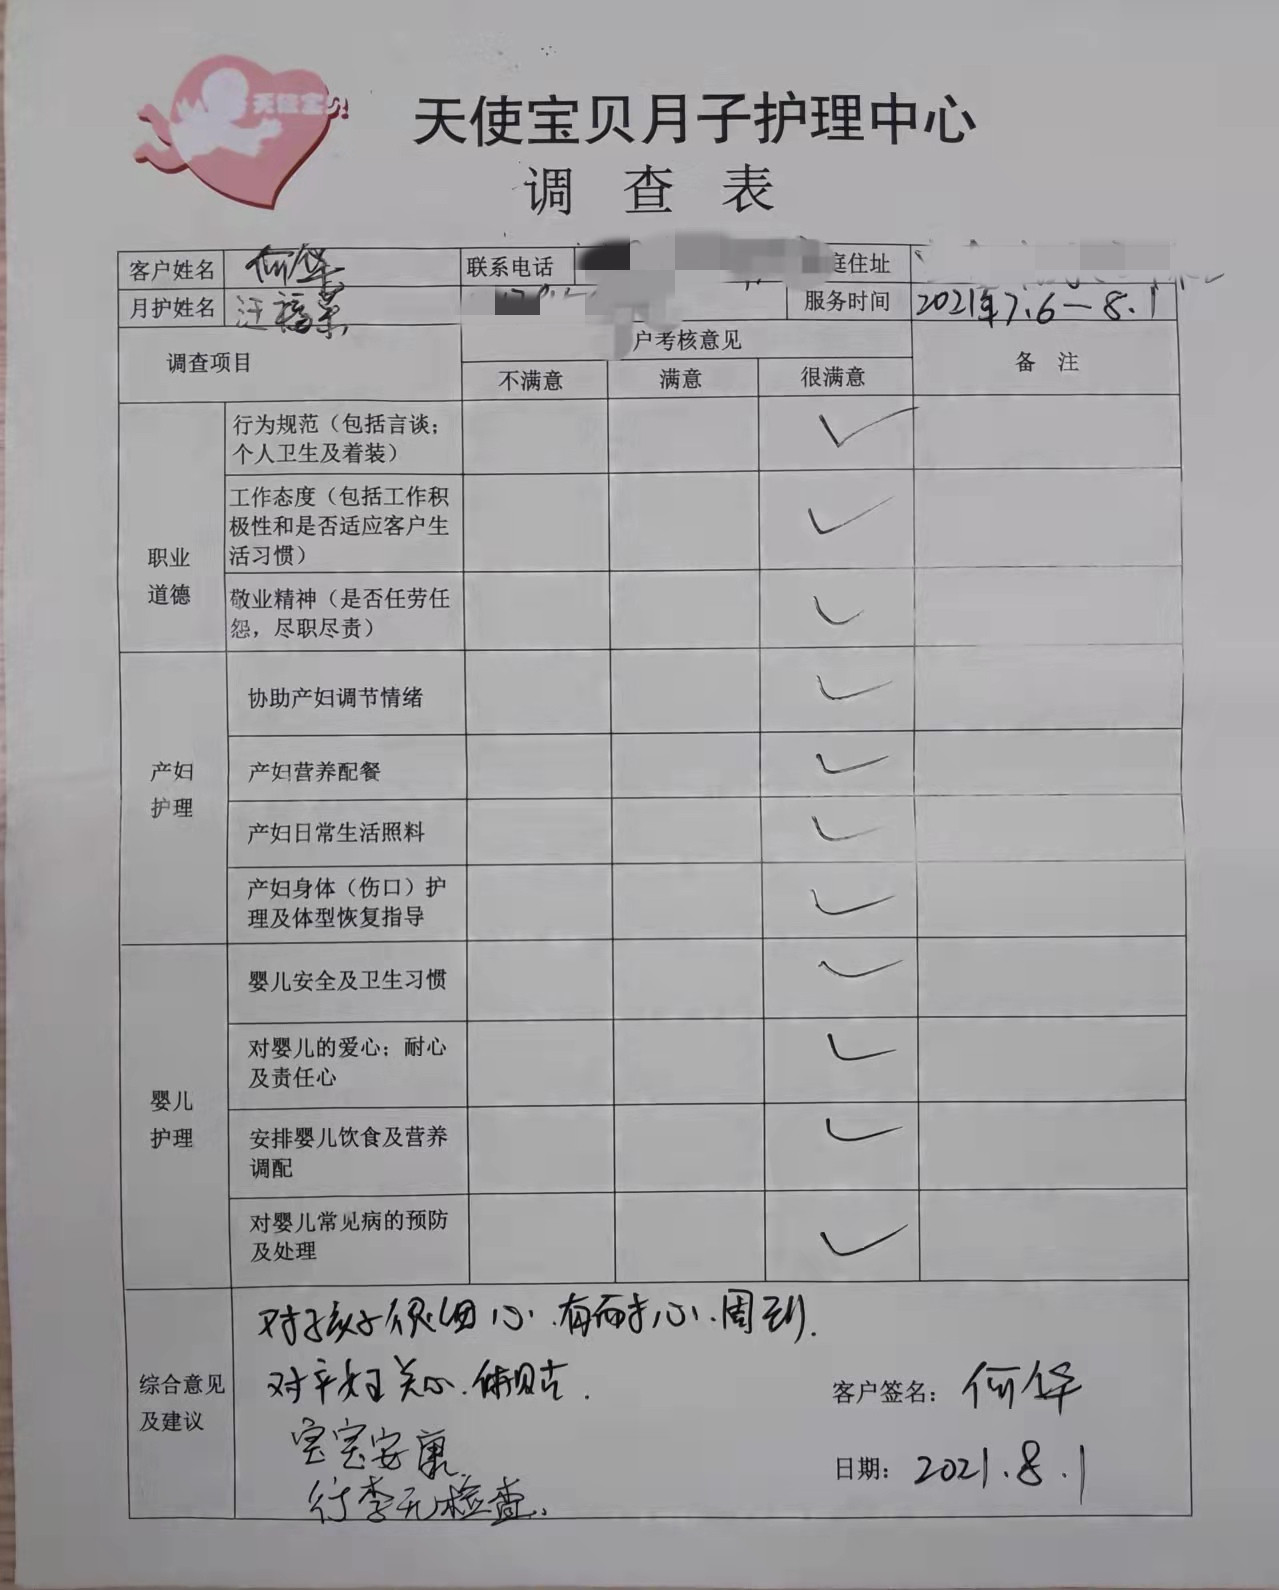 天使宝贝
天使宝贝月子护理中心
调 查 表
客户姓名 何华 联系电话 庭住址
月护姓名 汪福景 服务时间 2021年7.6－8.1
调查项目 户考核意见 备 注
不满意 满意 很满意
职业
道德
行为规范（包括言谈；
个人卫生及着装）
工作态度（包括工作积
极性和是否适应客户生
活习惯）
敬业精神（是否任劳任
怨，尽职尽责）
产妇
护理
协助产妇调节情绪
产妇营养配餐
产妇日常生活照料
产妇身体（伤口）护
理及体型恢复指导
婴儿
护理
婴儿安全及卫生习惯
对婴儿的爱心；耐心
及责任心
安排婴儿饮食及营养
调配
对婴儿常见病的预防
及处理
综合意见
及建议
对孩子很细心.有耐心.周到.
对产妇关心.体贴.
宝宝安康.
行李无检查.
客户签名： 何华
日期： 2021.8.1